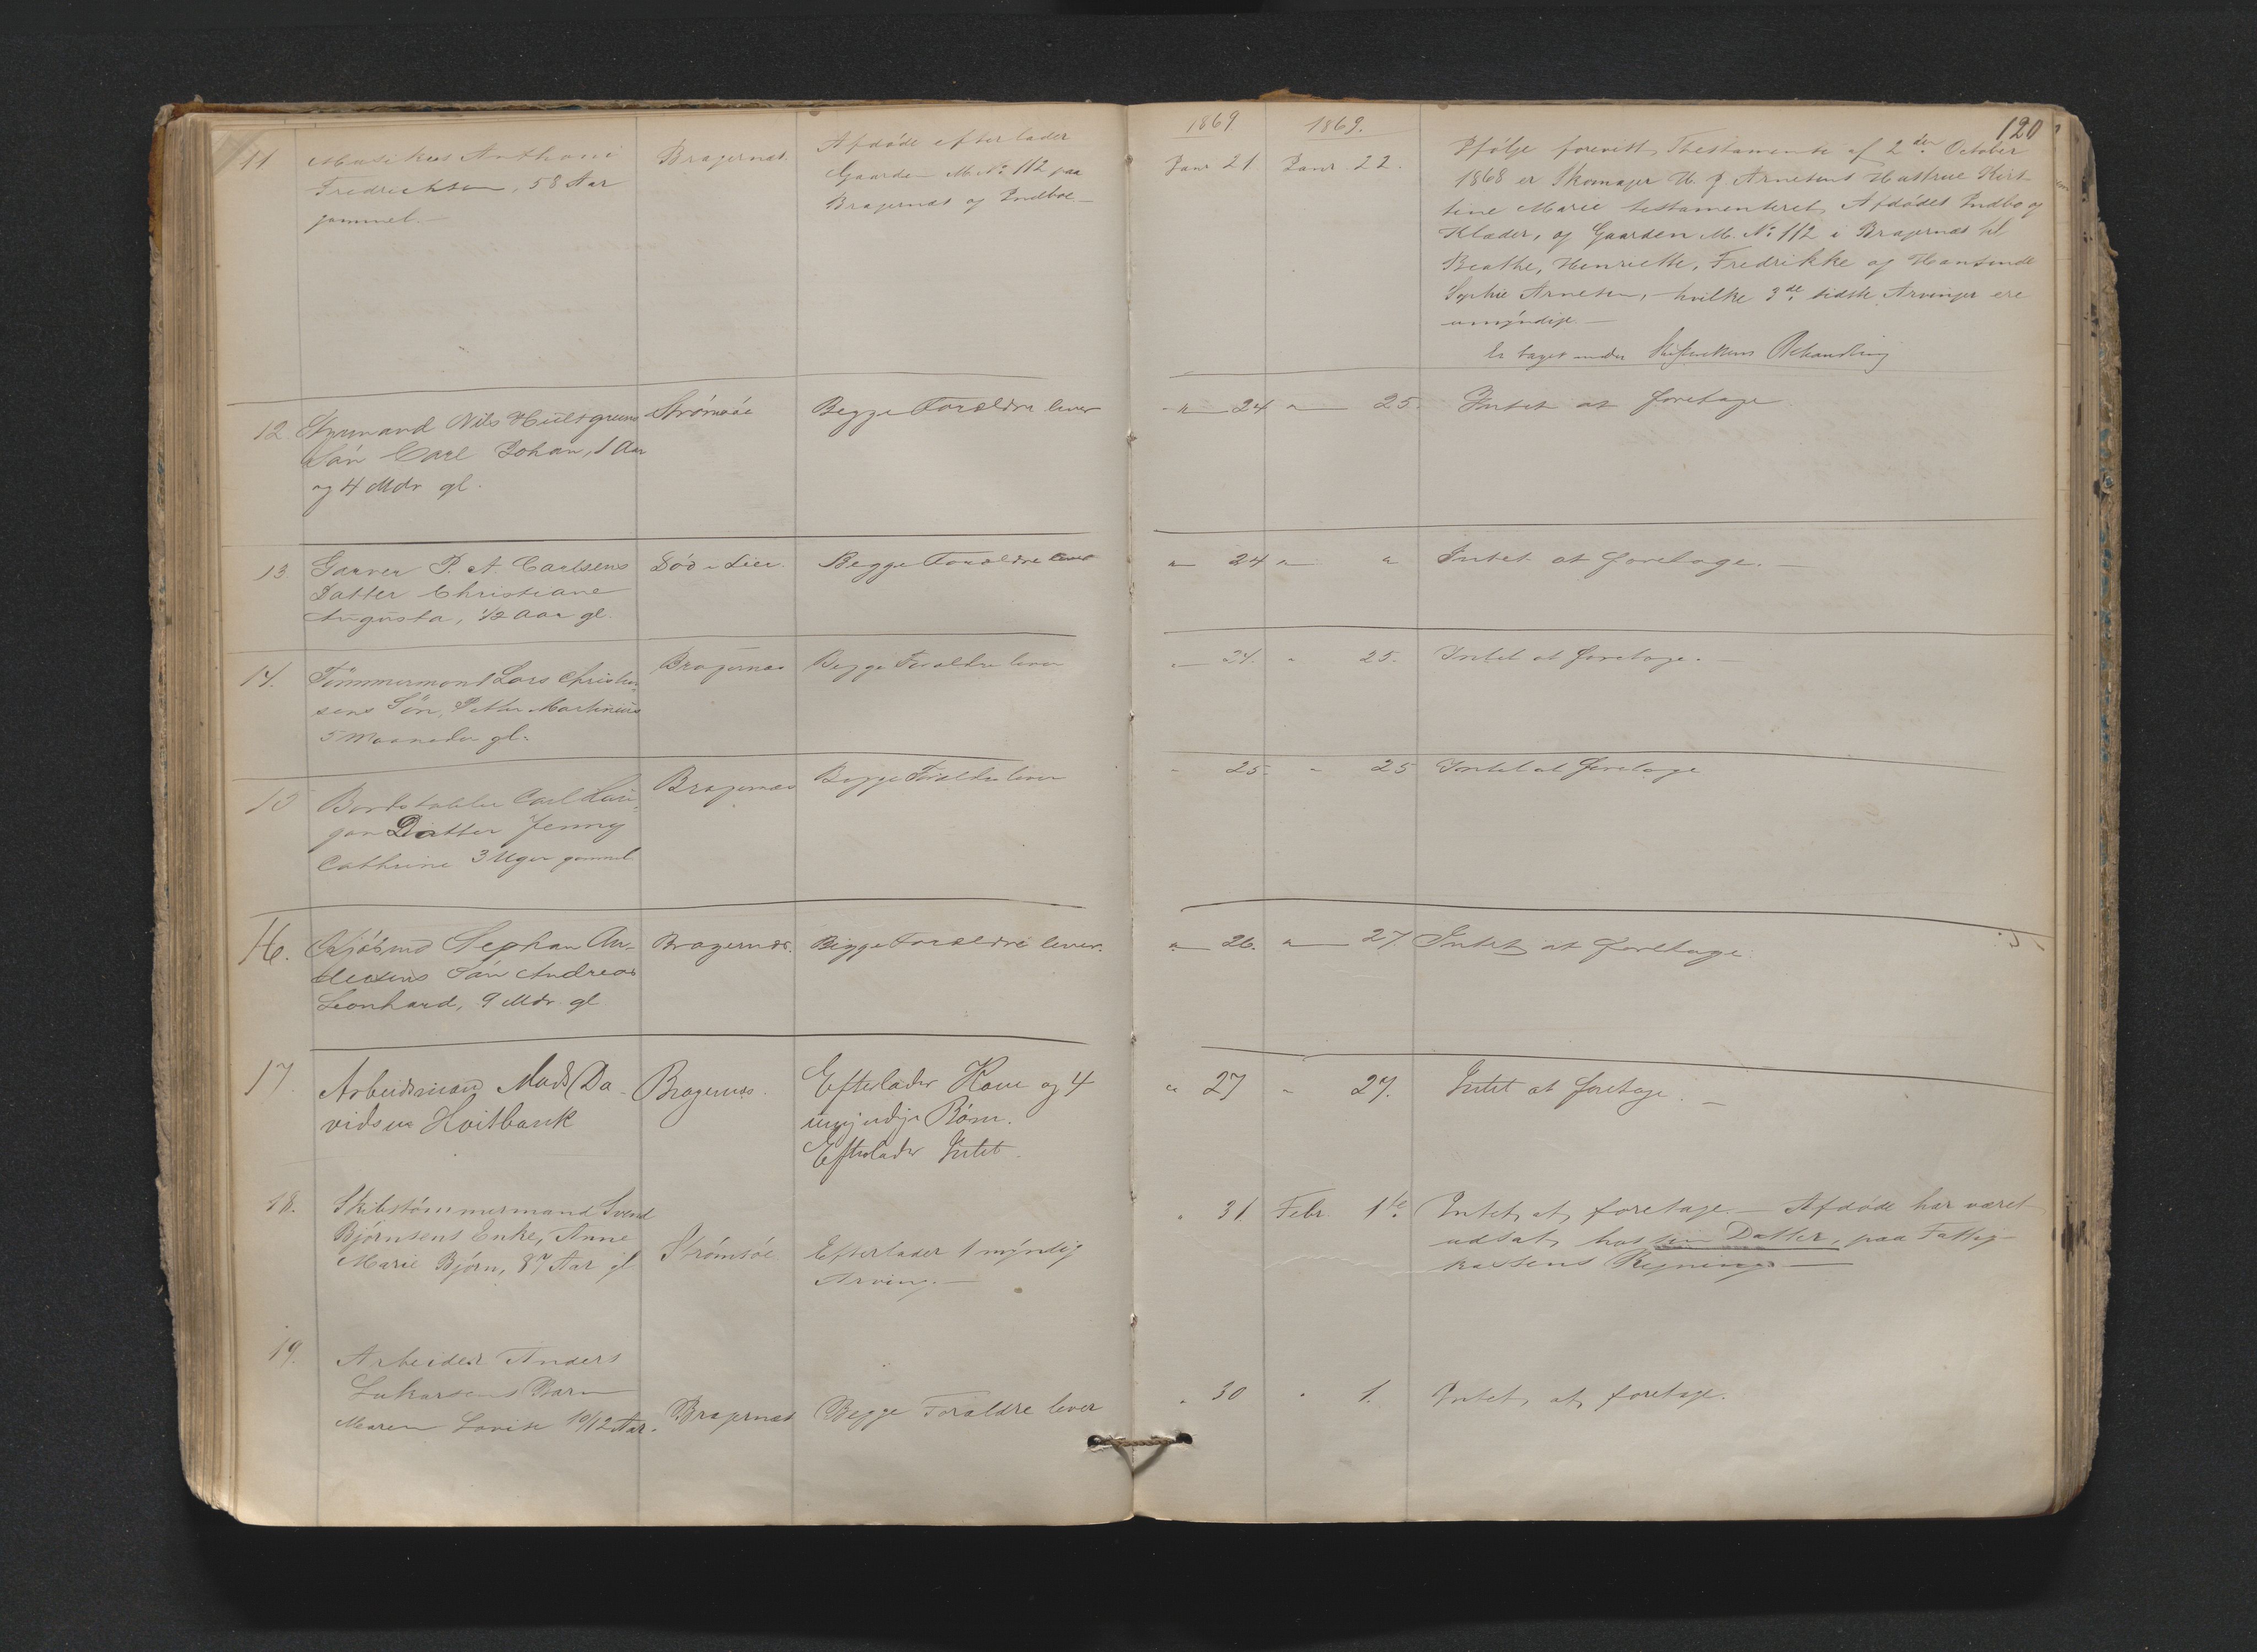 1869. 1869. 120
11 Musikus Anthoni
Fredrichsen, 58 Aar
gammel.—
Bragernæs.
Afdøde efterlader
Gaarden M. No. 112 paa
Bragernæs og Indboe.—
Janr 21. Janr 22.
Ifølge forevist Thestamente af 2den October
1868 er Skomager H. J. Arnesens Hustrue Kirs-
tine Marie testamenteret Afdødes Indbo og
Klæder, og Gaarden M. No. 112 i Bragernæs til
Beathe, Henriette, Fredrikke og Hansinde
Sophie Arnesen,— hvilke 3de sidste Arvinger ere
umyndige.—
Er taget under Skifterettens Behandling
12. Styrmand Nils Hultgreens
Søn Carl Johan, 1 Aar
og 4 Mdr gl.
Strømsøe
Begge Forældre lever
" 24 " 25.
Intet at foretage.
13. Garver P. A. Carlsens
Datter Christiane
Augusta, 1/2 Aar gl.
Død i Lier.
Begge Forældre lever
" 24 " "
Intet at foretage.—
14. Tømmermand Lars Christen-
sens Søn, Petter Martinius
5 Maaneder gl.
Bragernæs
Begge Forældre lever
" 24. " 25.
Intet at foretage.—
15 Bordstabler Carl
Datter Jenny
Cathrine 3 Uger gammel.
Bragernæs
Begge Forældre lever
" 25. " 25
Intet at foretage
16. Kjøbmd Stephan An-
dersens Søn Andreas
Leonhard, 9 Mdr. gl
Bragernæs.
Begge Forældre lever.
" 26. " 27.
Intet at foretage.
17. Arbeidsmand Mads Da-
vidsen Hvitbank
Bragernæs.
Efterlader Kone og 4
umyndige Børn.
Efterlader Intet.
" 27 " 27.
Intet at foretage.—
18. Skibstømmermand Svend
Bjørnsens Enke, Anne
Marie Bjørn, 87 Aar gl
Strømsøe
Efterlader 1 myndig
Arving.—
" 31. Febr. 1te
Intet at foretage.— Afdøde har været
udsat hos sin Datter, paa Fattig-
kassens Regning.—
19. Arbeider Anders
Lukasens Barn
Maren Lovise 10/12 Aar.
Bragernæs
Begge Forældre lever
" 30 " 1.
Intet at foretage.